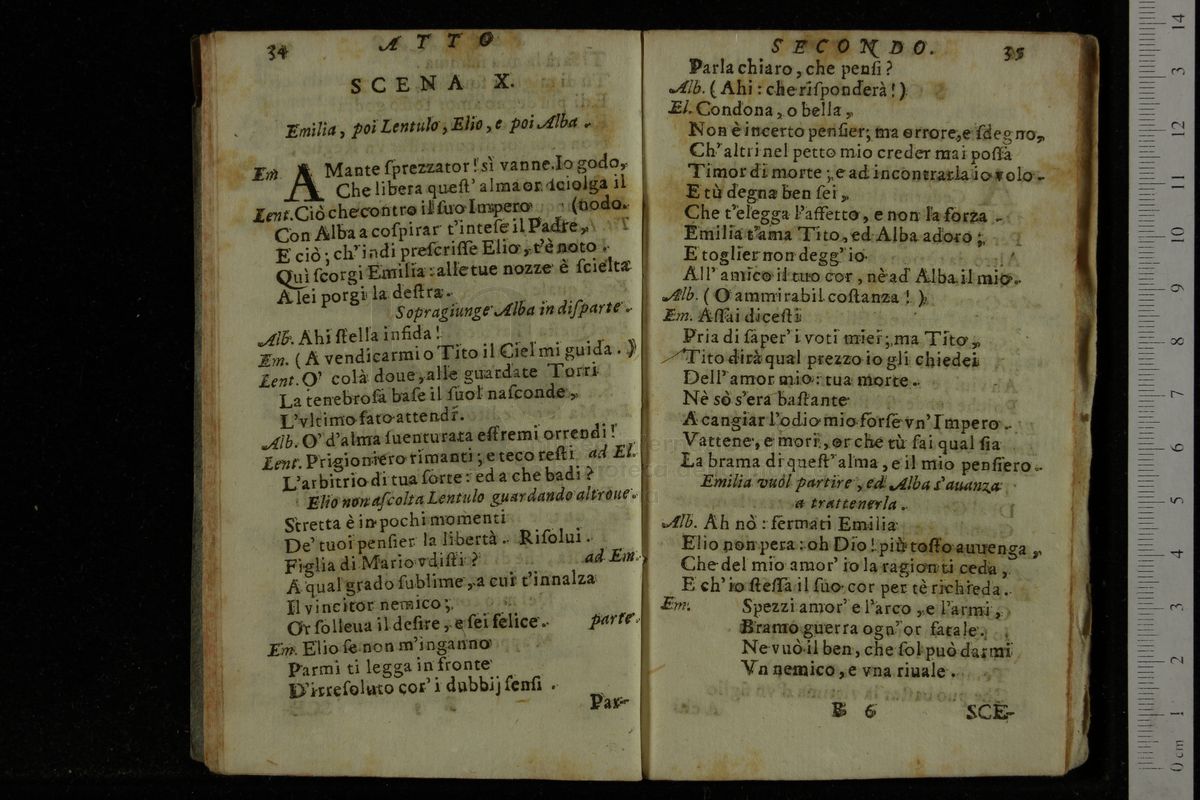 34 ATTO
SCENA X.
Emilia, poi Lentulo, Elio, e poi Alba.
Em AMante ſprezzator! sì vanne. Io godo,
Che libera queſt' alma or ſciolga il
Lent. Ciò che contro il ſuo Impero (nodo.
Con Alba a coſpirar t'inteſe il Padre,
E ciò; ch'indi preſcriſſe Elio, t'è noto.
Quì ſcorgi Emilia: alle tue nozze è ſcielta
A lei porgi la deſtra.
Sopragiunge Alba in diſparte.
Alb. Ahi ſtella infida!
Em. (A vendicarmi o Tito il Ciel mi guida.)
Lent. O' colà doue, alle guardate Torri
La tenebroſa baſe il ſuol naſconde,
L'vltimo fato attendi.
Alb. O' d'alma ſuenturata eſtremi orrendi!
Lent. Prigioniero rimanti; e teco reſti ad El.
L'arbitrio di tua ſorte: ed a che badi?
Elio non aſcolta Lentulo guardando altroue.
Stretta è in pochi momenti
De' tuoi penſier la libertà. Riſolui.
Figlia di Mario vdiſti? ad Em.
A qual grado ſublime, a cui t'innalza
Il vincitor nemico;
Or ſolleua il deſire, e ſei felice. parte.
Em. Elio ſe non m'inganno
Parmi ti legga in fronte
D'irreſoluto cor' i dubbij ſenſi.
Par-
SECONDO. 35
Parla chiaro, che penſi?
Alb. (Ahi: che riſponderà!)
El. Condona, o bella,
Non è incerto penſier; ma errore, e ſdegno,
Ch'altri nel petto mio creder mai poſſa
Timor di morte; e ad incontrarla io volo.
E tù degna ben ſei,
Che t'elegga l'affetto, e non la forza.
Emilia t'ama Tito, ed Alba adoro;
E toglier non degg'io
All' amico il tuo cor, nè ad Alba il mio.
Alb. (O ammirabil coſtanza!)
Em. Aſſai diceſti
Pria di ſaper' i voti miei; ma Tito,
Tito dirà qual prezzo io gli chiedei
Dell' amor mio: tua morte.
Nè sò s'era baſtante
A cangiar l'odio mio forſe vn' Impero.
Vattene, e mori, or che tù ſai qual ſia
La brama di queſt' alma, e il mio penſiero.
Emilia vuol partire, ed Alba s'auanza
a trattenerla.
Alb. Ah nò: fermati Emilia
Elio non pera: oh Dio! più toſto auuenga,
Che del mio amor' io la ragion ti ceda,
E ch' io ſteſſa il ſuo cor per tè richieda.
Em. Spezzi amor' e l'arco, e l'armi,
Bramo guerra ogn' or fatale.
Ne vuò il ben, che ſol può darmi
Vn nemico, e vna riuale.
B 6 SCE-